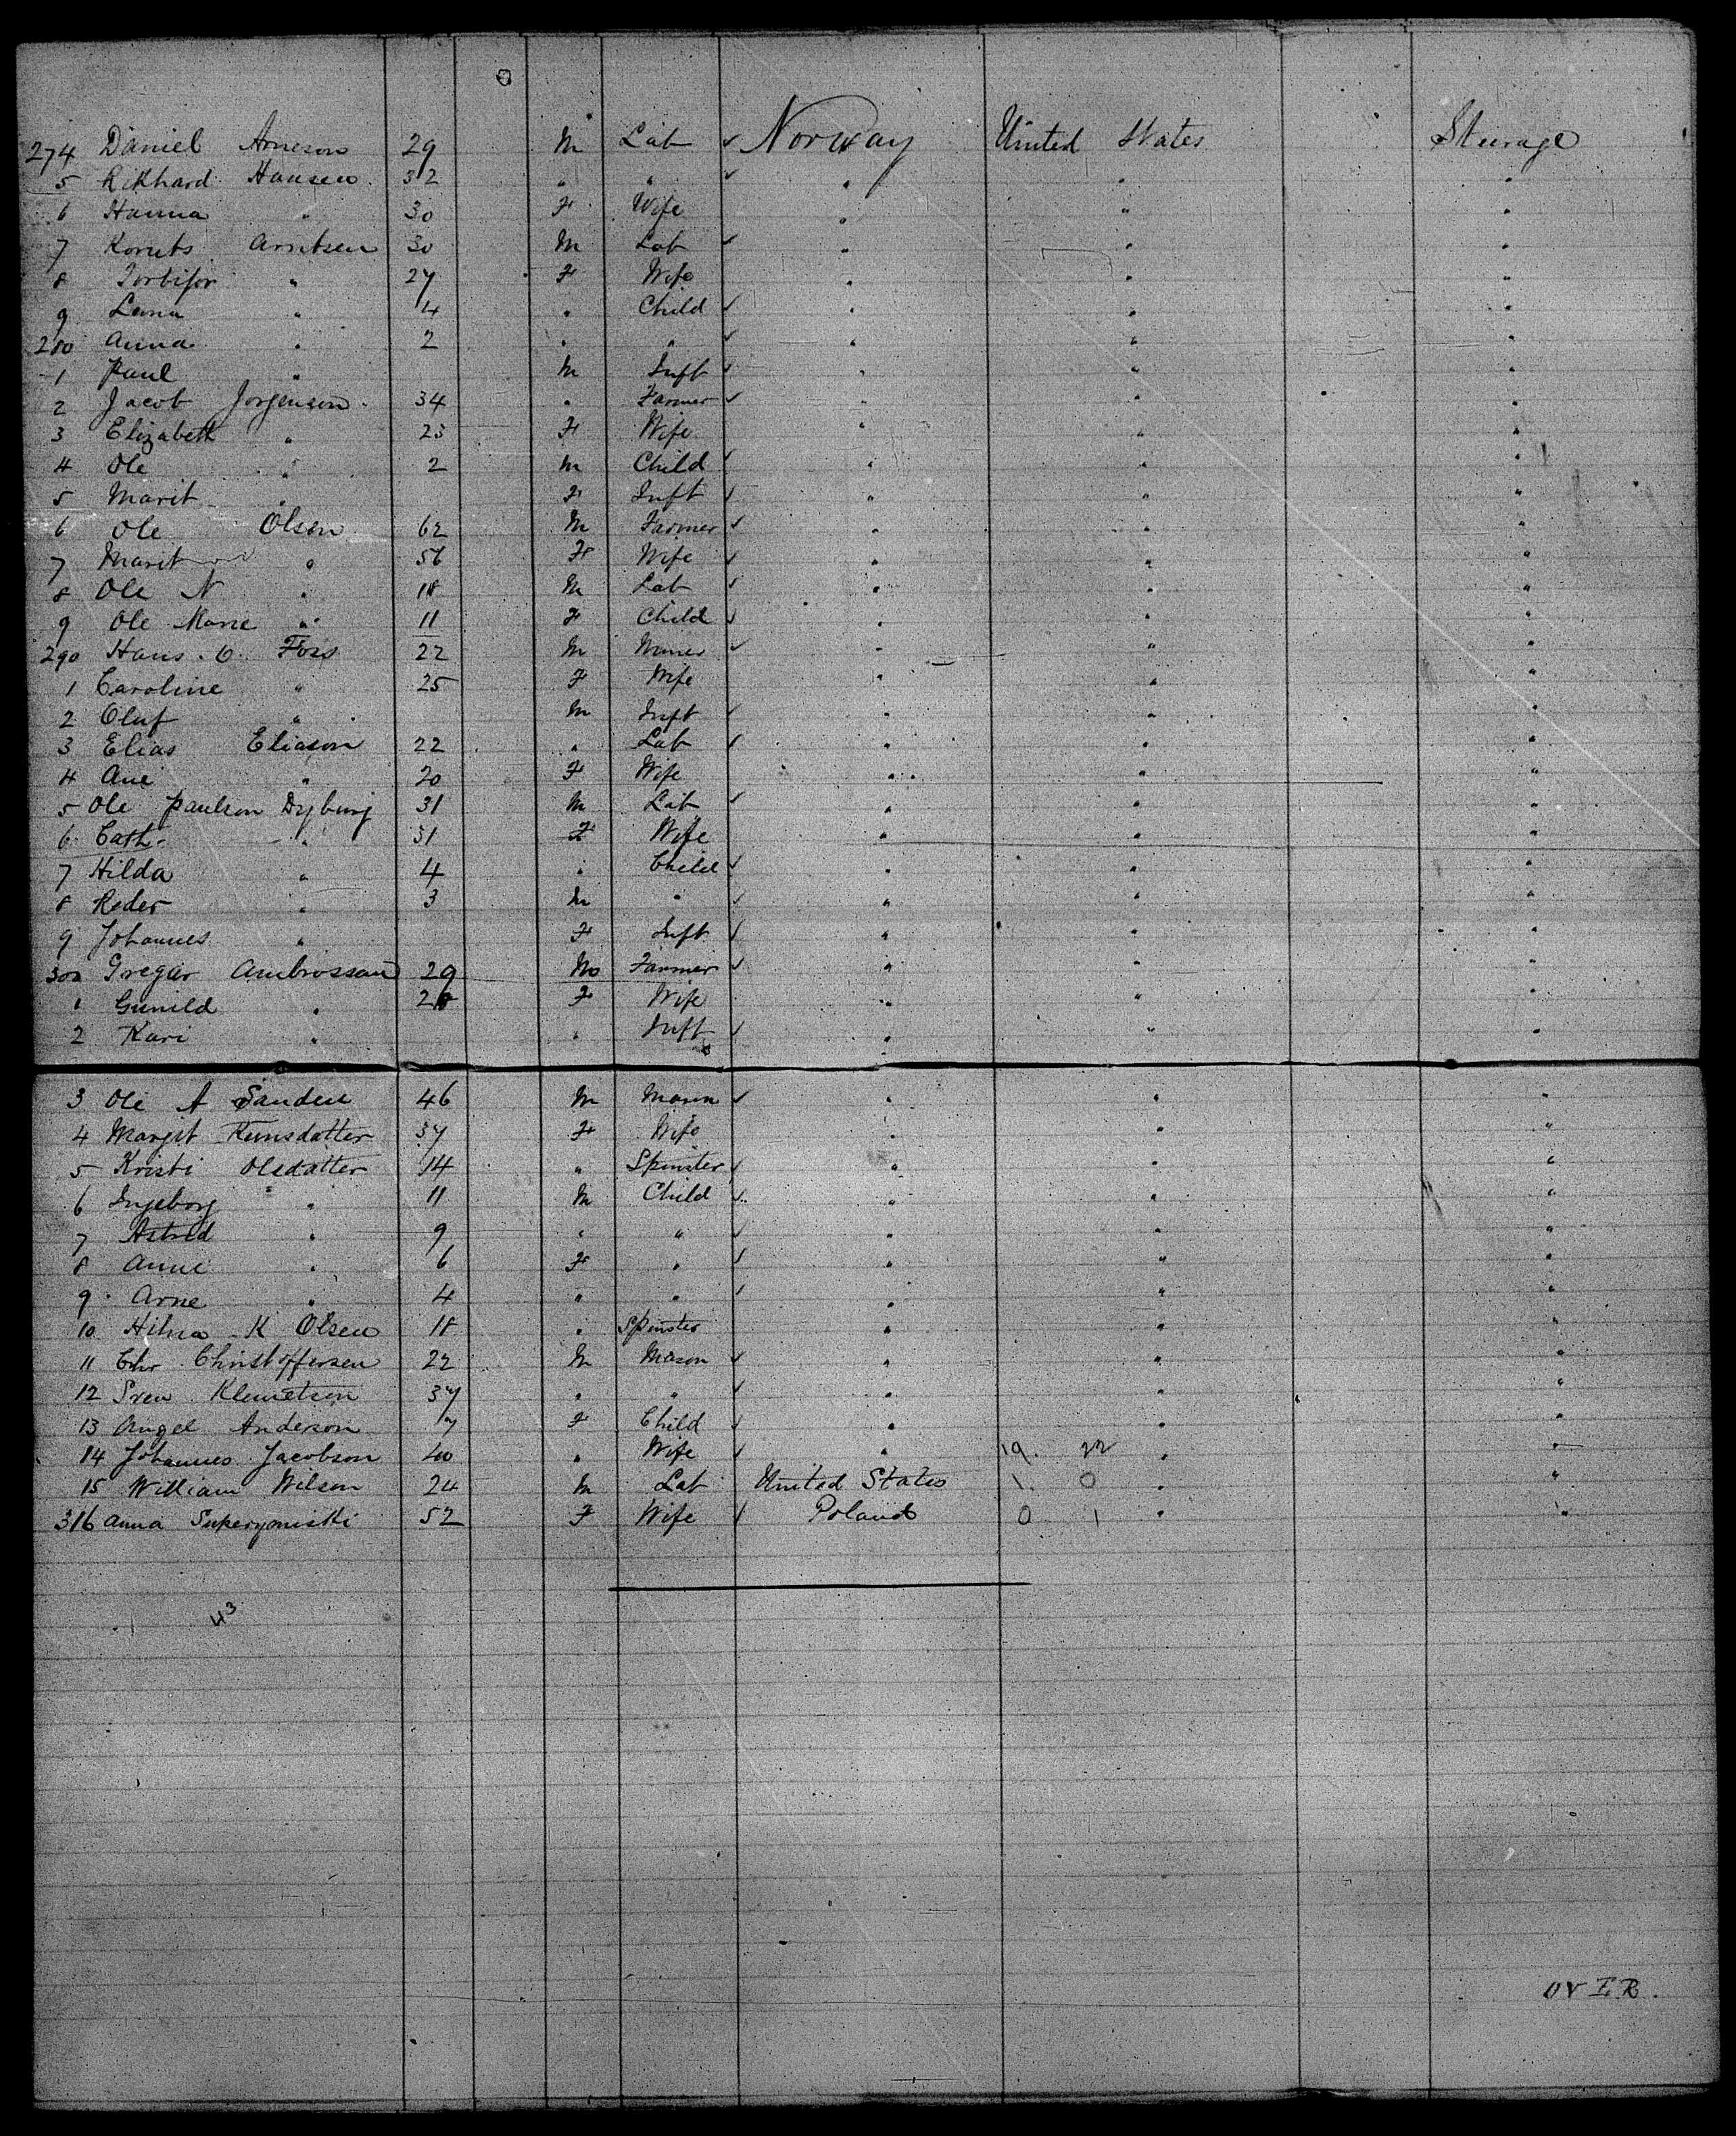 274 Daniel Arneson 29 M Lab ✓ Norway United States Steerage
5 Rikhard Hansen 32 " " ✓ " " "
6 Hanna " 30 F Wife " " "
7 Arntsen 30 M Lab ✓ " " "
8 " 27 F Wife " " "
9 Lena " 4 " Child ✓ " " "
280 Anna " 2 " " ✓ " " "
1 Paul " M Inft ✓ " " "
2 Jacob Jorgenson 34 " Farmer ✓ " " "
3 Elizabeth " 23 F Wife " " "
4 Ole " 2 M Child ✓ " " "
5 Marit " F Inft ✓ " " "
6 Ole Olson 62 M Farmer ✓ " " "
7 Marit " 56 F Wife ✓ " " "
8 Ole N " 18 M Lab ✓ " " "
9 Ole Marie " 11 F Child ✓ " " "
290 Hans O. Foss 22 M Miner ✓ " " "
1 Caroline " 25 F Wife " " "
2 Oluf " M Inft ✓ " " "
3 Elias Eliason 22 " Lab ✓ " " "
4 Ane " 20 F Wife " " "
5 Ole Paulson 31 M Lab ✓ " " "
6 Cath. " 31 F Wife " " "
7 Hilda " 4 " Child ✓ " " "
8 Peder " 3 M " ✓ " " "
9 Johannes " F Inft ✓ " " "
300 Gregar Ambrossan 29 M Farmer ✓ " " "
1 Gunild " 28 F Wife " " "
2 Kari " " Inft ✓ " " "
3 Ole A Sanden 46 M Mason ✓ " " "
4 Margit 37 F Wife " " "
5 Kristi Olsdatter 14 " Spinster ✓ " " "
6 Ingeborg " 11 M Child ✓ " " "
7 Astrid " 9 " " ✓ " " "
8 Anne " 6 F " ✓ " " "
9 Arne " 4 " " ✓ " " "
10 K Olsen 18 " Spinster " " "
11 Chr Christoffersen 22 M Mason ✓ " " "
12 Sven Klemetson 37 " " ✓ " " "
13 Angel Anderson 7 F Child ✓ " " "
14 Johannes Jacobson 40 " Wife ✓ " 19. 22 " "
15 William Wilson 24 M Lab United States 1. 0 " "
316 Anna 52 F Wife ✓ Poland 0 1 " "
43
OVER.